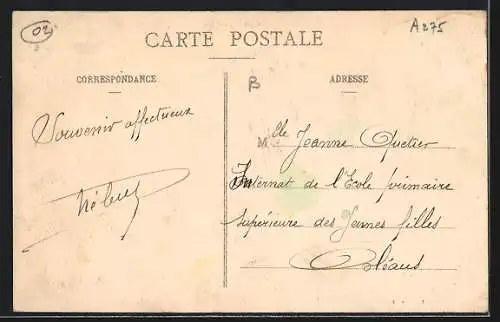 02
A 275
CARTE POSTALE
CORRESPONDANCE
B
ADRESSE
Souvenir affectueux
Mlle Jeanne Quetier
Internat de l'Ecole primaire
Supérieure des Jeunes filles
Orléans